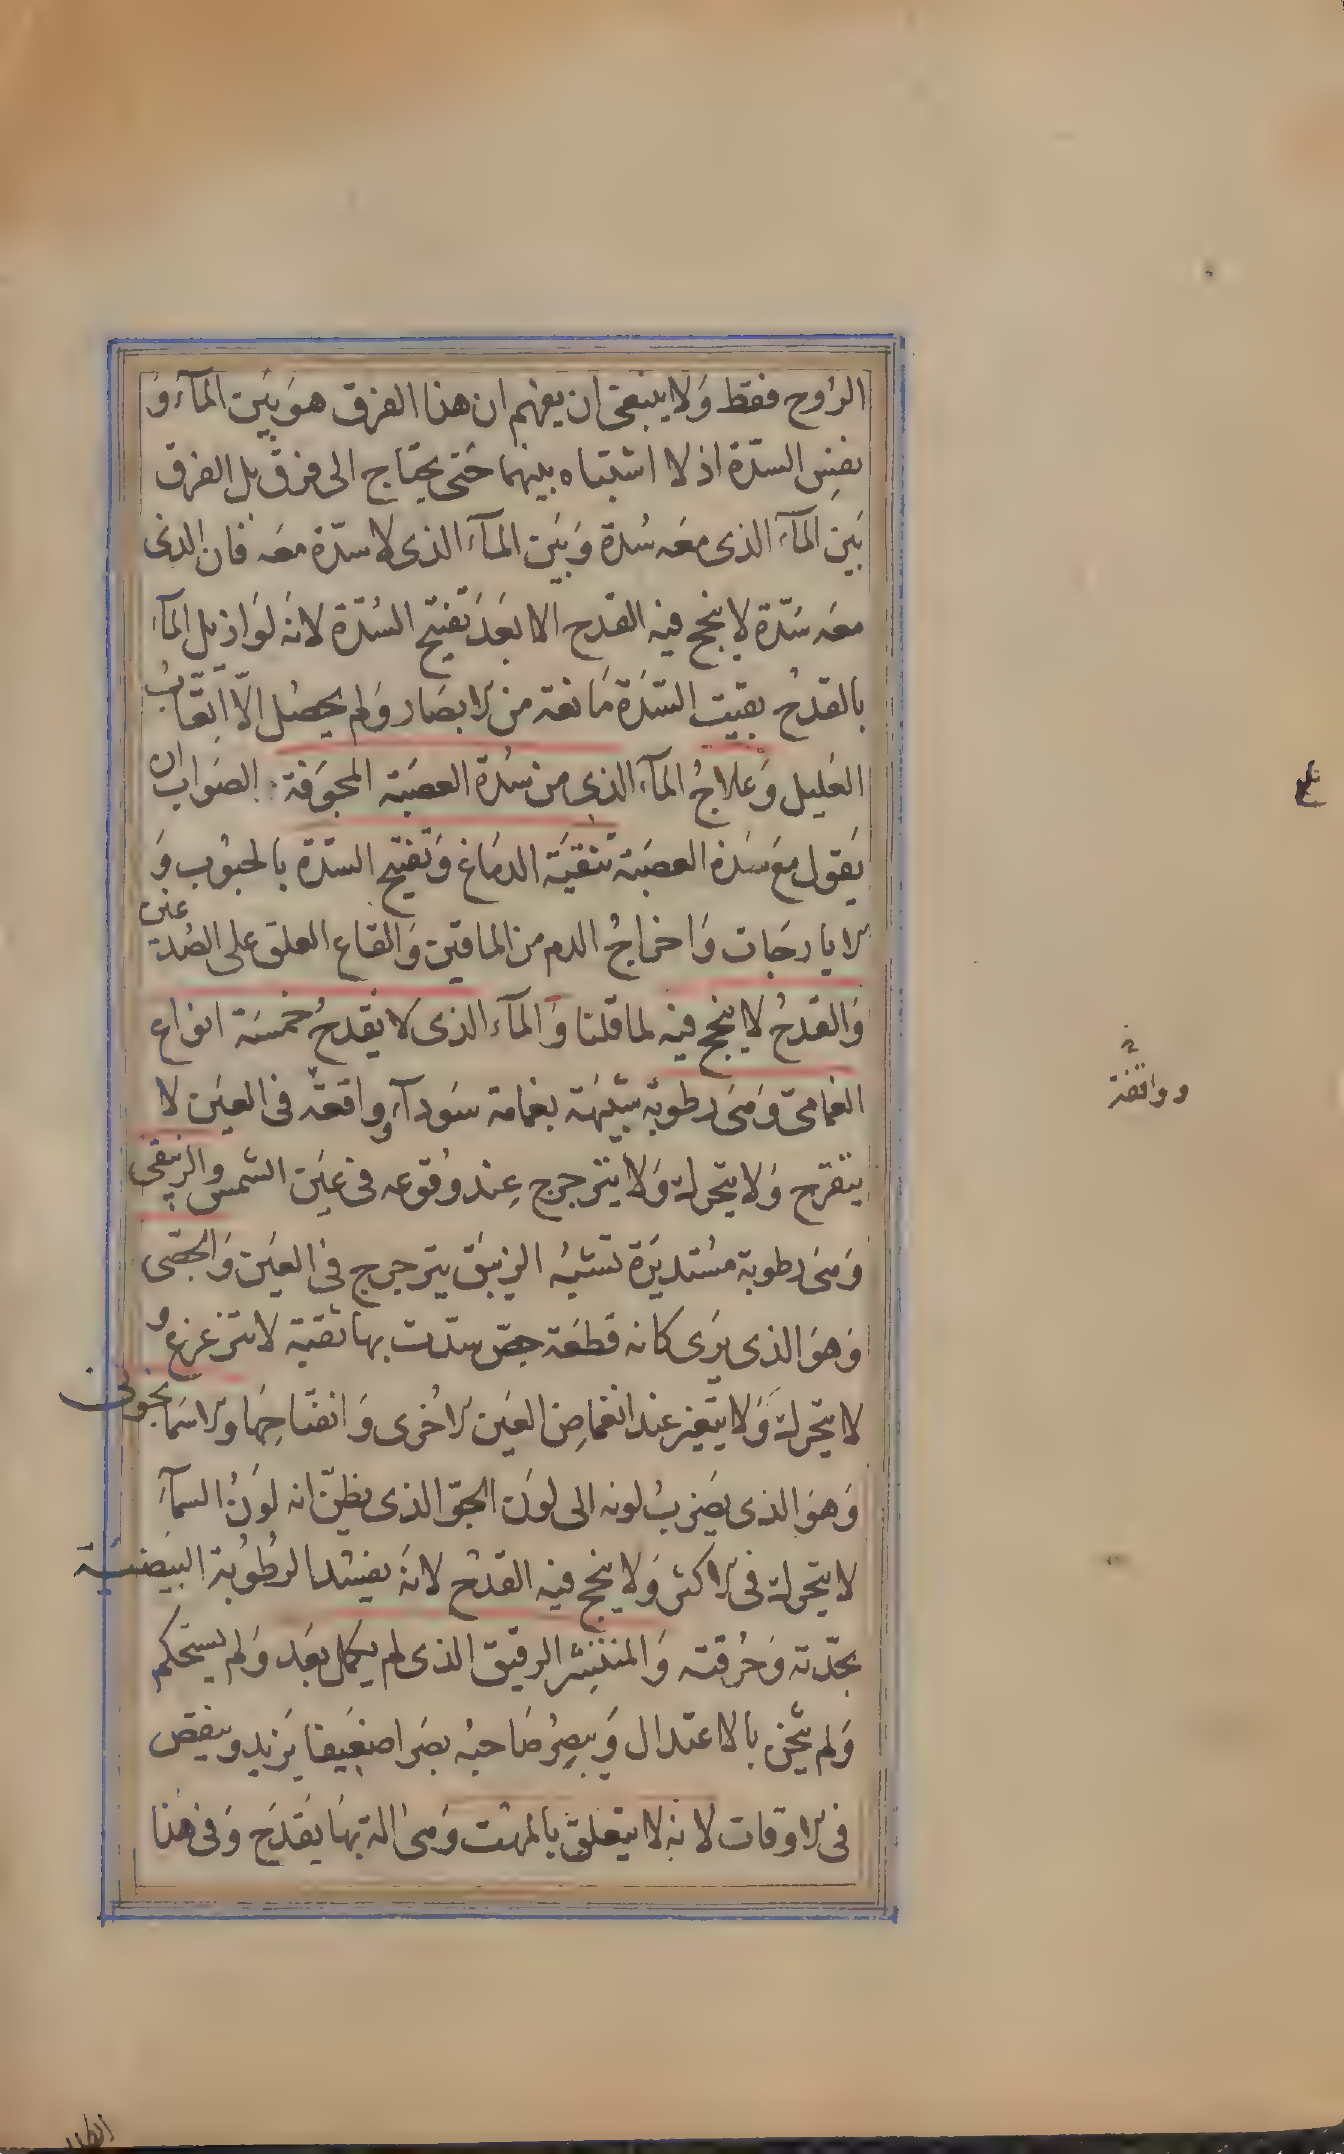 الرُوح فقط وَلا ينبغى ان يفهم ان هذا الفرق هوَ بَيَن المآء وَ
بفسِ السدّة اذ لا اشتباه بينهما حَتى يحتاج الى فرق بل الفرق
بَيَن المآءَ الذى معَه سُدة وَ بَيَن المآءَ الذى لا سدّة معَه فان الذى
معَه سَدّة لا ينجح فيه القدح الا بَعَدَ تَفتيح السُدّة لانه لَوَ اذيل المآءَ
بالقدحُ بقيت السّدَة مَانعة من الابصَار وَلم يحصُل الّا اتعَّابُ
العَليل وَعلاجُ المآءَ الذى من سُدة العصَبَة المجوَفة الصَواب ان
يَقول معَ سَدة العصَبَة تنقيَة الدمَاغ وَتفتيح السدّة بالحبوُب وَ
الايارجَات وَاخراجُ الدم من الماقين وَالقاع العلق على الصُدغين
وَالقدحُ لا ينجح فيه لما قلنا وَالمآء الذى لا يقدحُ خمسَة انواع
الغمامى وَهىَ رطوبة شبَيهَة بغمامة سَودآء وواقعة فى العيَن لا
يتفرح وَلا يتحرك وَلا يترجرج عِند وُقوعه فى عيَن الشمس والزيبقى
وَهىَ رطوبة مسُتديَرة تشبهُ الزيبق يترجرج فى العيَن وَالجصّى
وَهوَ الذى يرَى كانه قطعَة جصّ سدّت بها ثقبة لا تتزعزع و
لا يتحرك وَلا يتغير عند انغماض العيَن الاخُرى وَ انفتاحِهَا والاسَمانجونى
وَهوَ الذى يضَربُ لونه الى لوَن الجوّ الذى يظنّ انه لوَنُ السمآءَ
لا يتحرك فى الاكثر وَلا ينجح فيه القدحُ لانهَ يفسُد الرطُوُبة البيَضية
بحدّته وَحرُقته وَالمنتشر الرقيق الذى لم يكمل بعَد وَلم يستحكم
وَلم يثخن بالاعتدال وَيبصِرُ صَاحبهُ بصَرا ضعَيفا يزَيد وينقص
فى الاوقات لانه لا يتعلق بالمهت وَهىَ الة بهَا يَقدَح وَفى هذا
ووافقة